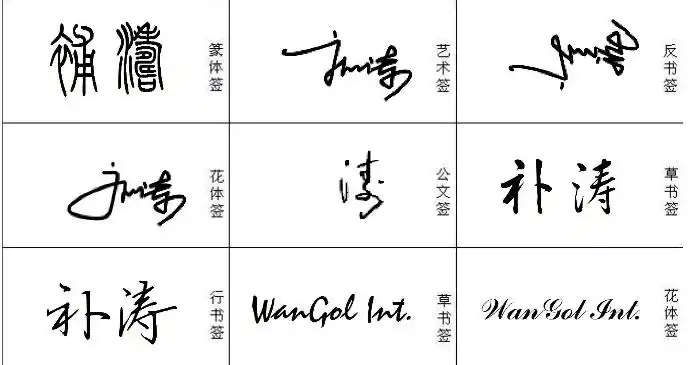 補濤 篆体签
补涛 艺术签
反书签
补涛 花体签
涛 公文签
补涛 草书签
补涛 行书签
WanGol Int. 草书签
WanGol Int. 花体签